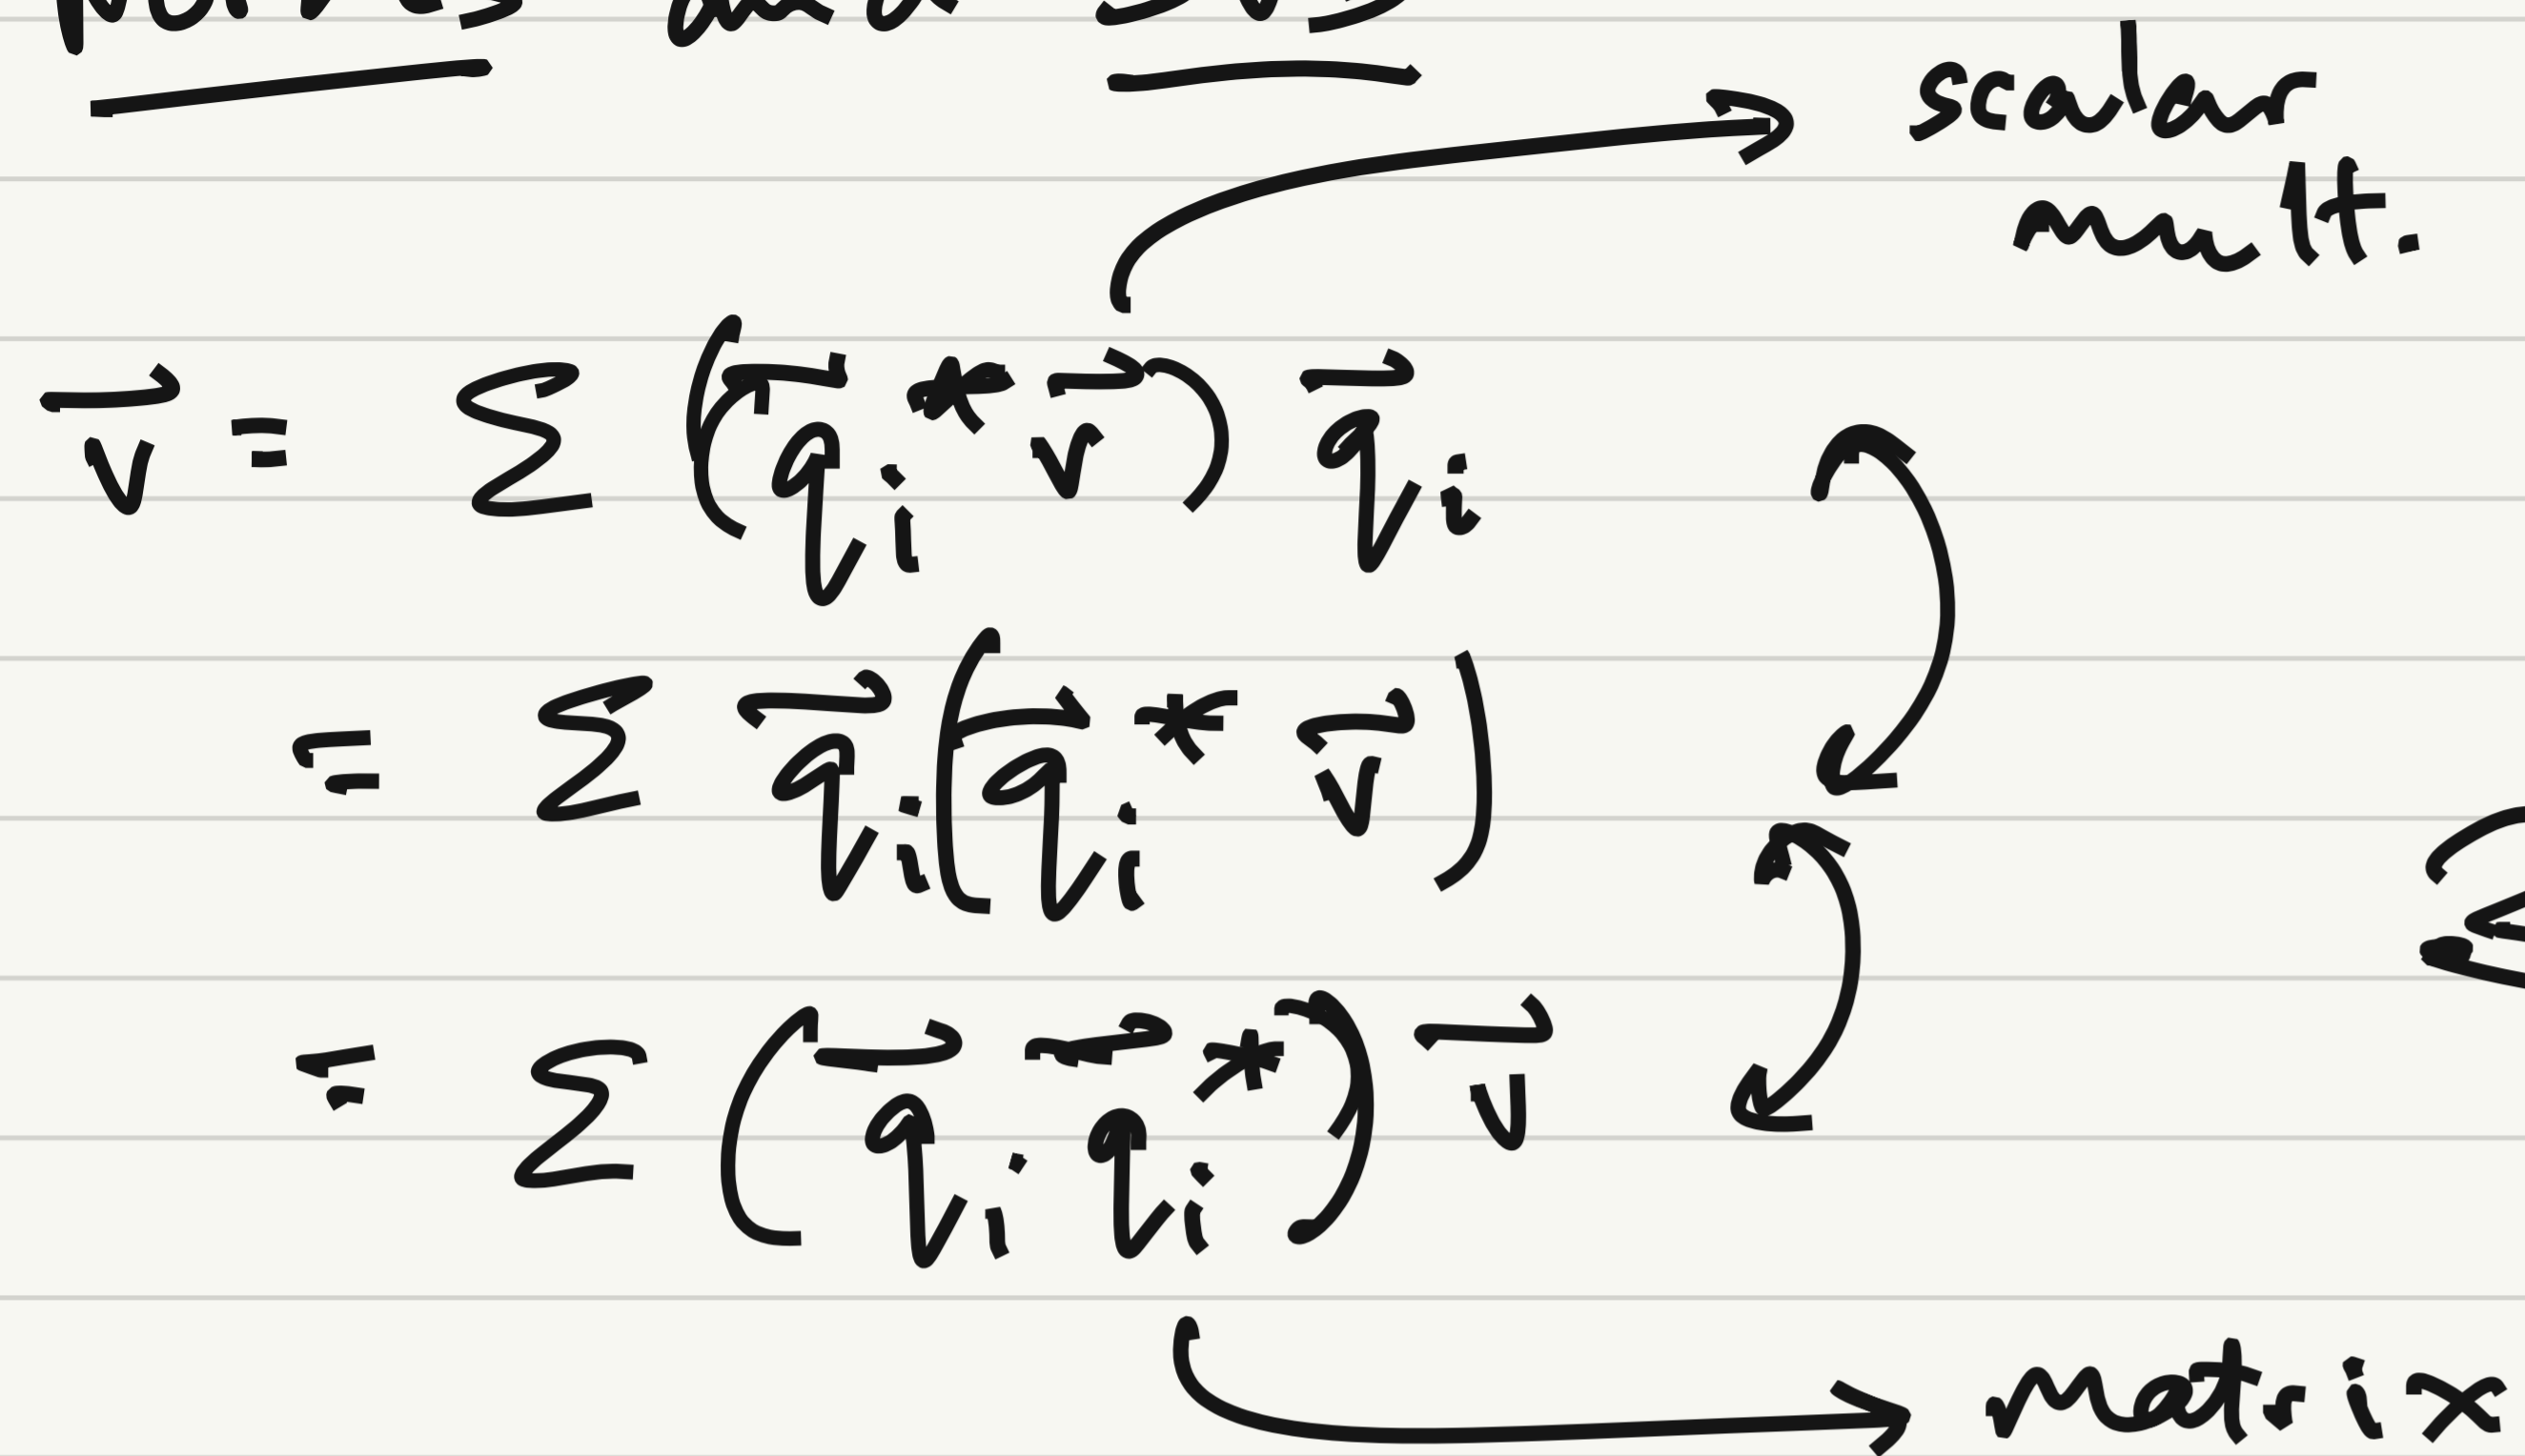 scalar
mult.
v⃗ = Σ (q⃗ᵢ* v⃗) q⃗ᵢ
= Σ q⃗ᵢ (q⃗ᵢ* v⃗)
= Σ (q⃗ᵢ q⃗ᵢ*) v⃗
matrix